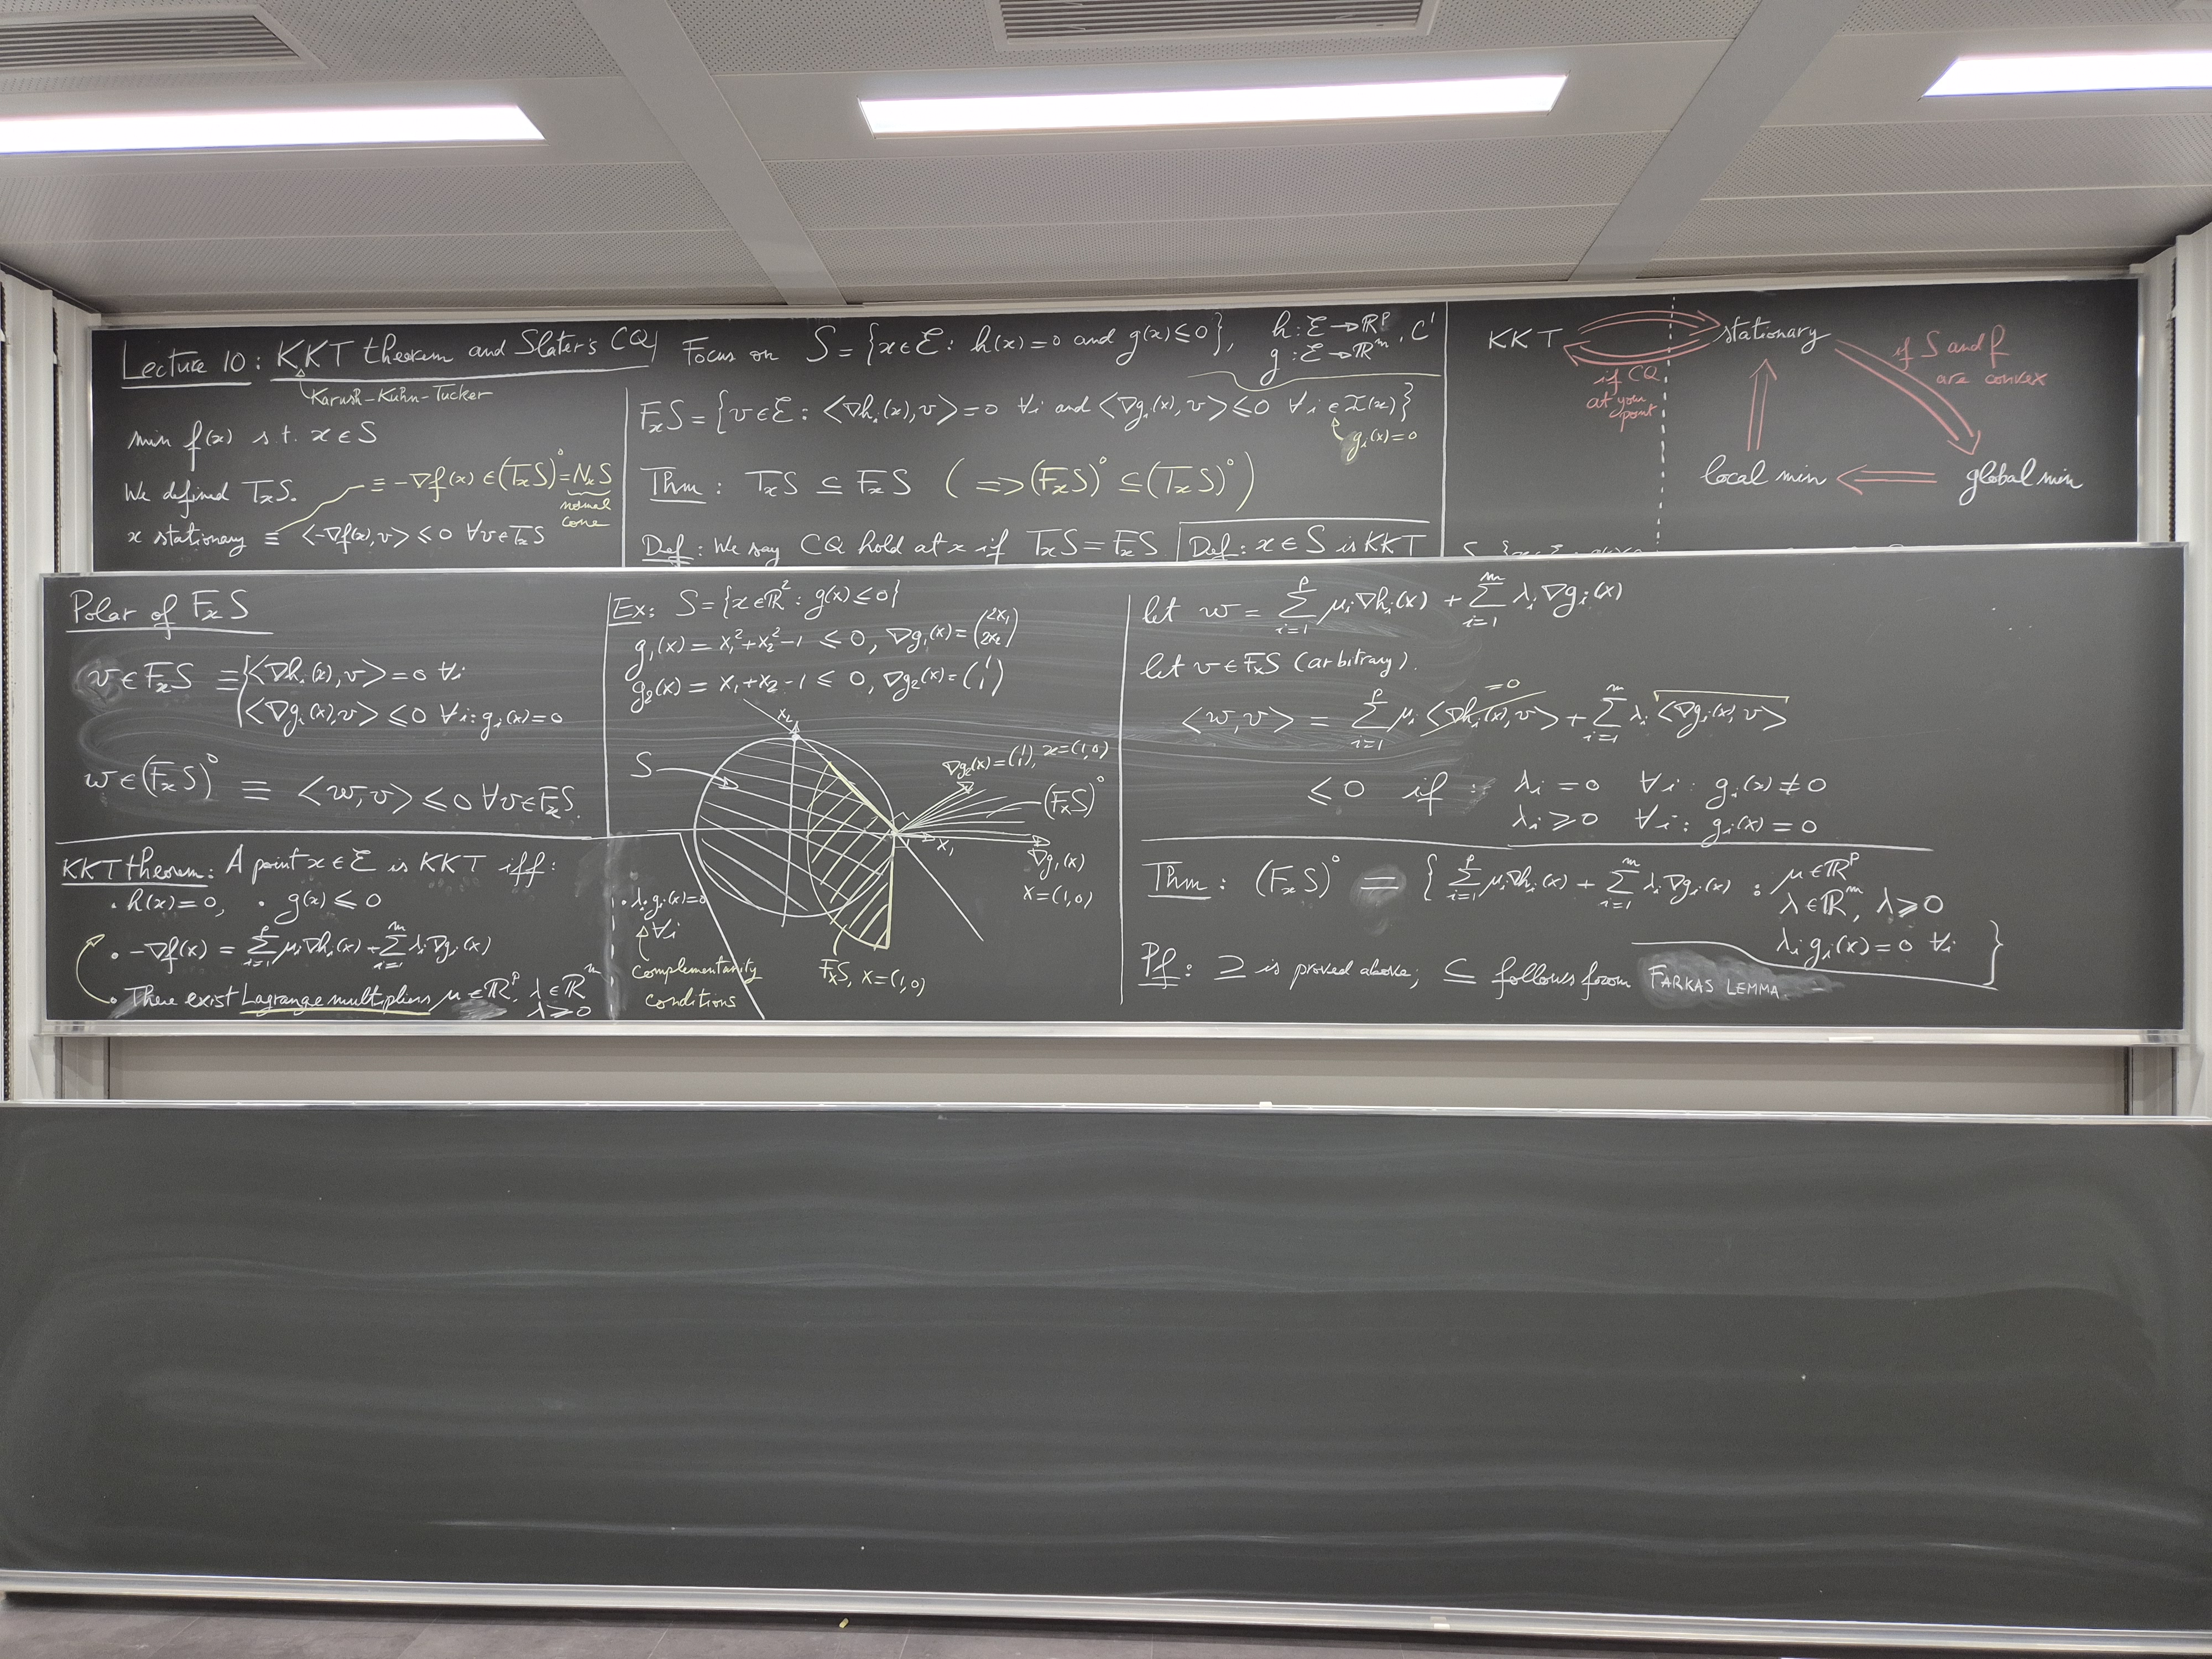 Lecture 10: KKT theorem and Slater's CQ
Karush-Kuhn-Tucker
min f(x) s.t. x ∈ S
We defined TₓS.
≡ -∇f(x) ∈ (TₓS)° = NₓS
normal
cone
x stationary ≡ <-∇f(x), v> ≤ 0 ∀v ∈ TₓS
Focus on S = {x ∈ ℰ : h(x) = 0 and g(x) ≤ 0}, h: ℰ → ℝᵖ, C¹
g: ℰ → ℝᵐ
FₓS = {v ∈ ℰ : <∇hᵢ(x), v> = 0 ∀i and <∇gᵢ(x), v> ≤ 0 ∀i ∈ I(x)}
gᵢ(x) = 0
Thm: TₓS ⊆ FₓS ( ⇒ (FₓS)° ⊆ (TₓS)° )
Def: We say CQ hold at x if TₓS = FₓS
Def: x ∈ S is KKT
KKT stationary
if CQ
at your
point
if S and f
are convex
local min global min
Polar of FₓS
v ∈ FₓS ≡ { <∇hᵢ(x), v> = 0 ∀i
<∇gᵢ(x), v> ≤ 0 ∀i: gᵢ(x) = 0
w ∈ (FₓS)° ≡ <w, v> ≤ 0 ∀v ∈ FₓS.
KKT theorem: A point x ∈ ℰ is KKT iff:
• h(x) = 0, • g(x) ≤ 0
• -∇f(x) = ∑ᵢ₌₁ᵖ μᵢ∇hᵢ(x) + ∑ᵢ₌₁ᵐ λᵢ∇gᵢ(x)
• There exist Lagrange multipliers μ ∈ ℝᵖ, λ ∈ ℝᵐ
λ ≥ 0
• λᵢgᵢ(x) = 0
∀i
complementarity
conditions
Ex: S = {x ∈ ℝ² : g(x) ≤ 0}
g₁(x) = x₁² + x₂² - 1 ≤ 0, ∇g₁(x) = (2x₁ 2x₂)
g₂(x) = x₁ + x₂ - 1 ≤ 0, ∇g₂(x) = (1 1)
x₂
S
∇g₂(x) = (1 1), x = (1,0)
(FₓS)°
x₁
∇g₁(x)
x = (1,0)
FₓS, x = (1,0)
let w = ∑ᵢ₌₁ᵖ μᵢ∇hᵢ(x) + ∑ᵢ₌₁ᵐ λᵢ∇gᵢ(x)
let v ∈ FₓS (arbitrary).
= 0
<w, v> = ∑ᵢ₌₁ᵖ μᵢ <∇hᵢ(x), v> + ∑ᵢ₌₁ᵐ λᵢ <∇gᵢ(x), v>
≤ 0 if : λᵢ = 0 ∀i: gᵢ(x) ≠ 0
λᵢ ≥ 0 ∀i: gᵢ(x) = 0
Thm: (FₓS)° = { ∑ᵢ₌₁ᵖ μᵢ∇hᵢ(x) + ∑ᵢ₌₁ᵐ λᵢ∇gᵢ(x) : μ ∈ ℝᵖ
λ ∈ ℝᵐ, λ ≥ 0
λᵢgᵢ(x) = 0 ∀i }
Pf: ⊇ is proved above; ⊆ follows from FARKAS LEMMA.